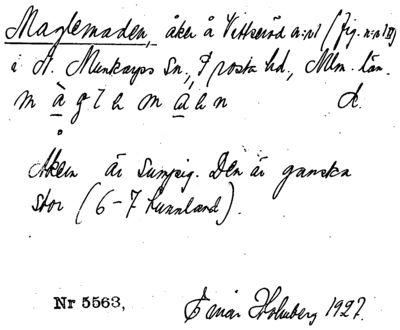 Maglemaden, åker å Vittseröd n:r 1 (fig. n:r 1 II)
i N. Munkarps sn., Frosta hd., Mlm. län.
m à g l e m à e n
Åkern är sumpig. Den är ganska
stor (6-7 tunnland).
Nr 5563, Einar Holmberg 1927.